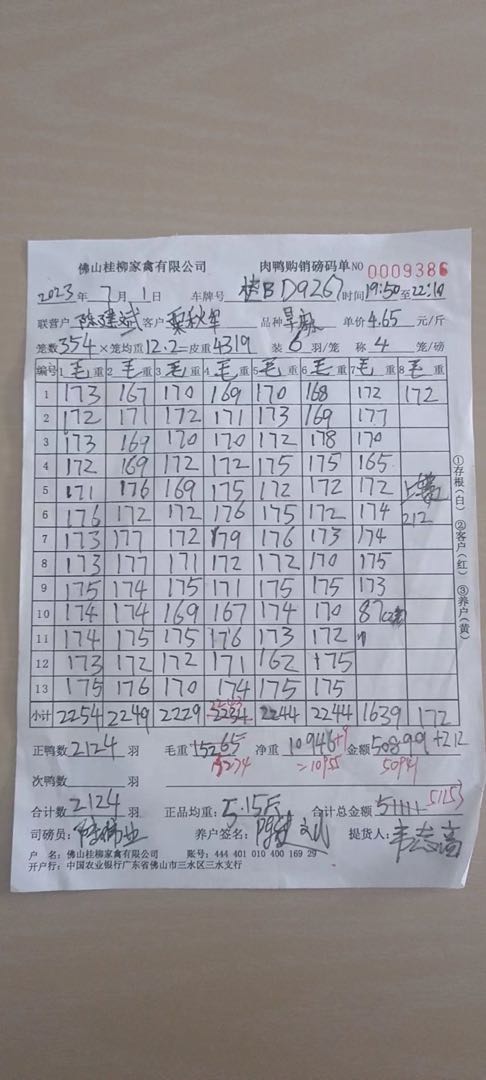 佛山桂柳家禽有限公司 肉鸭购销磅码单 NO 0009386
2023年 7月 1日 车牌号 桂B D9267 时间 19:50 至 22:10
联营户 陈建斌 客户 秋 品种 单价 4.65 元/斤
笼数 354 ×笼均重 12.2 =皮重 4319 装 6 羽/笼 称 4 笼/磅
编号 1 毛 重 2 毛 重 3 毛 重 4 毛 重 5 毛 重 6 毛 重 7 毛 重 8 毛 重
1 173 167 170 169 170 168 172 172
2 172 171 172 171 173 169 177
3 173 169 170 170 172 178 170
4 172 169 172 172 175 175 165
5 171 176 169 175 172 172 172 上
6 176 172 172 176 175 172 174 212
7 173 177 172 179 176 173 174
8 173 177 171 172 172 170 175
9 175 174 175 171 175 175 173
10 174 174 169 167 174 170 87
11 174 175 175 176 173 172
12 173 172 172 171 162 175
13 175 176 170 174 175 175
2243
小计 2254 2249 2229 2234 2244 2244 1639 172
正鸭数 2124 羽 毛重 15265 净重 10946 +9 金额 50899 +212
15274 =10955 50941
次鸭数 羽
合计数 2124 羽 正品均重: 5.15斤 合计总金额 51111 51153
司磅员: 养户签名: 提货人: 韦志高
户 名: 佛山桂柳家禽有限公司 账号: 444 401 010 400 169 29
开户行: 中国农业银行广东省佛山市三水区三水支行
①存根(白) ②客户(红) ③养户(黄)